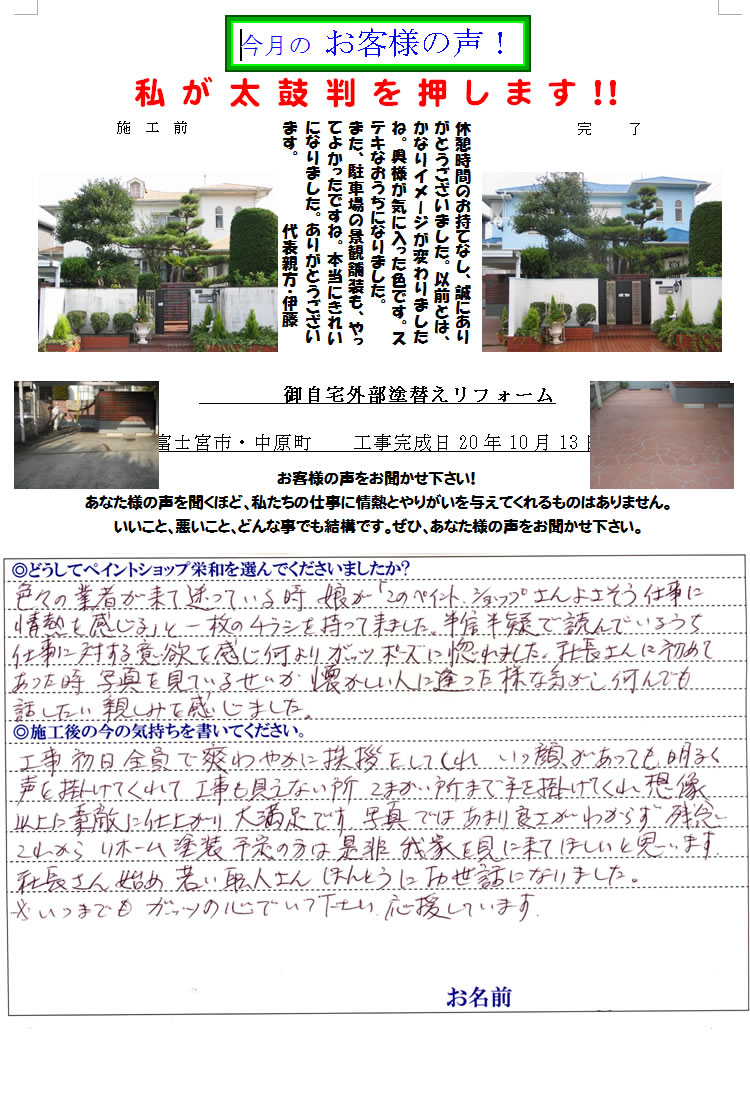 今月の お客様の声！
私が太鼓判を押します!!
施工前
完了
休憩時間のお持てなし、誠にあり
がとうございました。以前とは、
かなりイメージが変わりました
ね。奥様が気に入った色です。ス
テキなおうちになりました。
また、駐車場の景観舗装も、やっ
てよかったですね。本当にきれい
になりました。ありがとうござい
ます。 代表親方・伊藤
御自宅外部塗替えリフォーム
富士宮市・中原町 工事完成日20年10月13日
お客様の声をお聞かせ下さい！
あなた様の声を聞くほど、私たちの仕事に情熱とやりがいを与えてくれるものはありません。
いいこと、悪いこと、どんな事でも結構です。ぜひ、あなた様の声をお聞かせ下さい。
◎どうしてペイントショップ栄和を選んでくださいましたか？
色々の業者が来て迷っている時 娘が「このペイントショップさんよさそう仕事に
情熱を感じる」と一枚のチラシを持って来ました。半信半疑で読んでいるうち
仕事に対する意欲を感じ何よりガッツポーズに惚れました。社長さんに初めて
あった時 写真を見ているせいか 懐かしい人に逢った様な気がし何んでも
話したい親しみを感じました。
◎施工後の今の気持ちを書いてください。
工事初日全員で爽わやかに挨拶をしてくれ いつ顔があっても明るく
声を掛けてくれて 工事も見えない所 こまかい所まで手を掛けてくれ 想像
以上に素敵に仕上がり 大満足です 写真ではあまり良さがわからず残念
これから リホーム 塗装 予定の方は是非 我家を見に来てほしいと思います
社長さん始め 若い職人さん ほんとうにお世話になりました。
※いつまでも ガッツの心でいて下さい 応援しています.
お名前